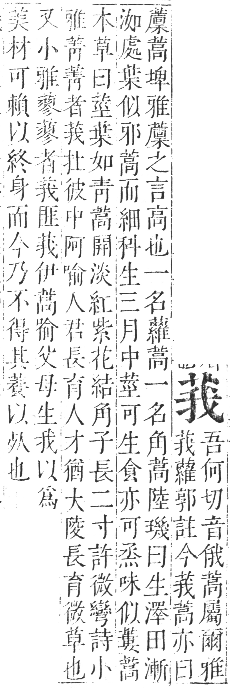 莪
吾何切音俄蒿屬爾雅
莪蘿郭註今莪蒿亦曰
䕲蒿埤雅䕲之言高也一名蘿蒿一名角蒿陸璣曰生澤田漸
洳處葉似邪蒿而細科生三月中莖可生食亦可烝味似蔞蒿
木草曰莖葉如靑蒿開淡紅紫花結角子長二寸許微彎詩小
雅菁菁者莪在彼中阿喻人君長育人才猶大陵長育微草也
又小雅蓼蓼者莪匪莪伊蒿喻父母生我以爲
美材可賴以終身而今乃不得其養以死也